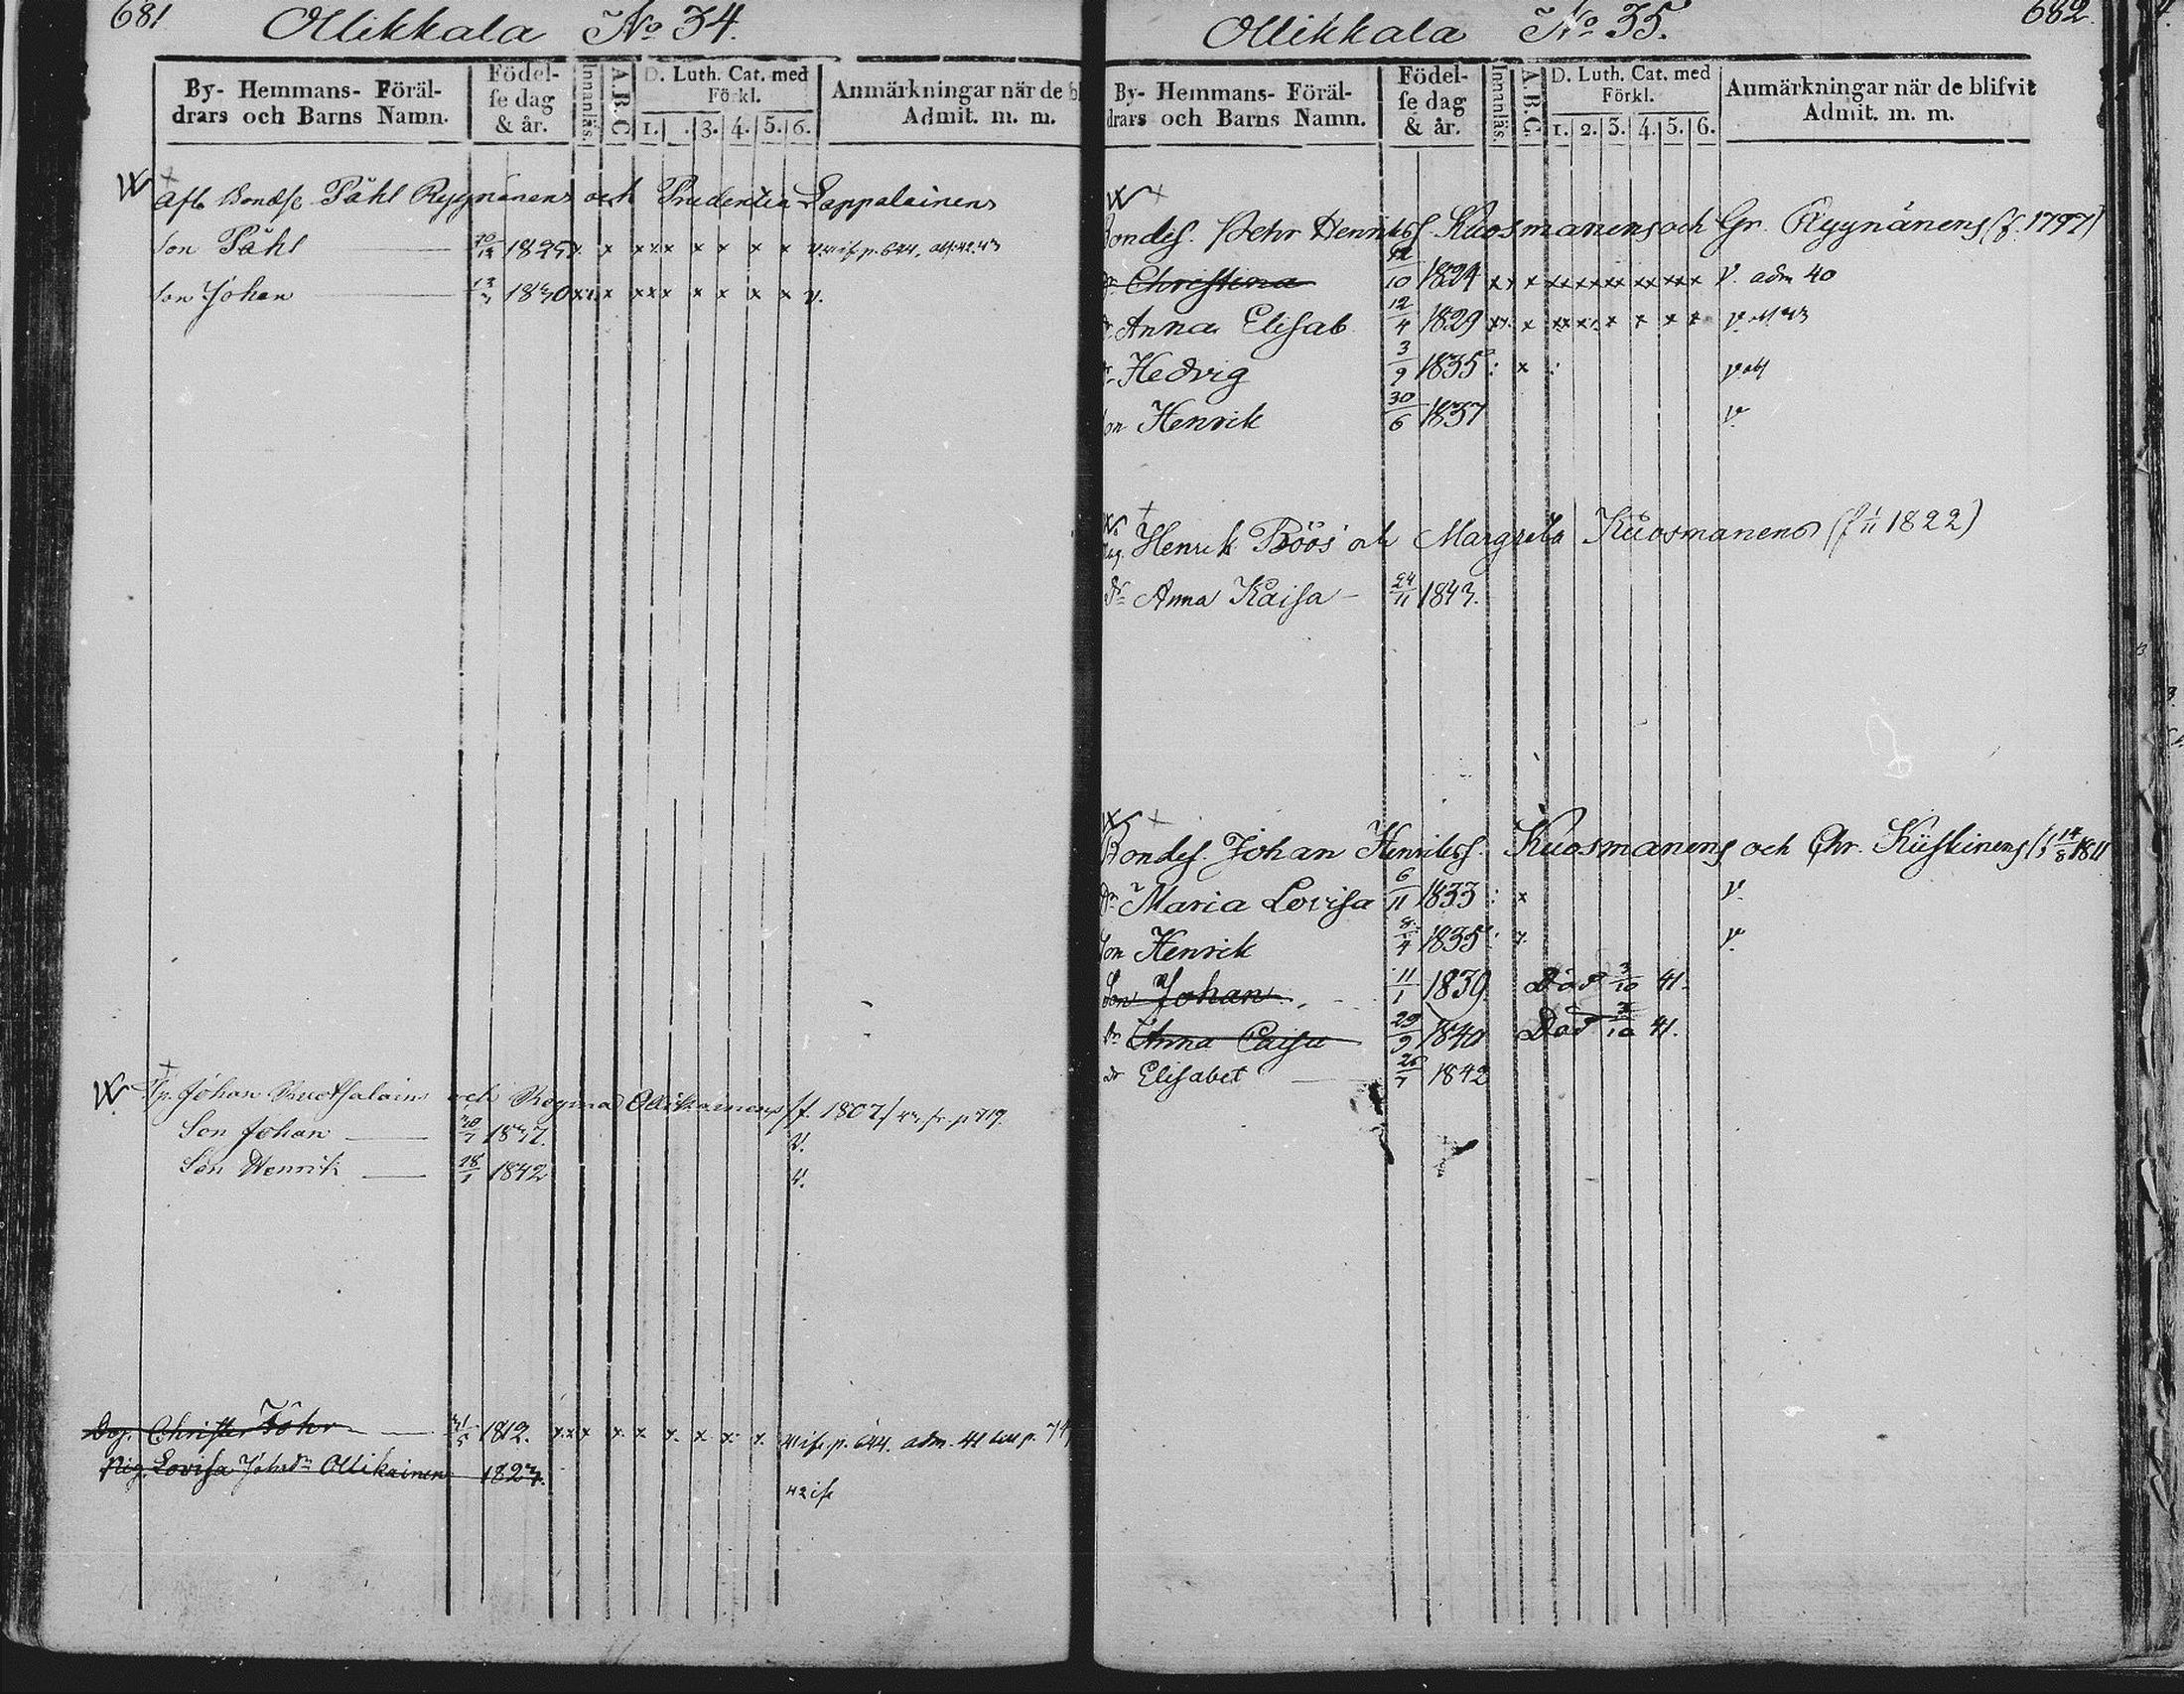 681
Ollikkala No 34.
By- Hemmans- Föräl-
drars och Barns Namn.
Födel-
se dag
& år.
Innanläs.
A.B.C
D. Luth. Cat. med
Förkl.
1. . 3. 4. 5. 6.
Anmärkningar när de bl
Admit. m. m.
Afl. Bonds. Påhl Ryynänens och Prudentia Lappalainens
Son Påhl 1825 x x x x x x x x
Son Johan 13/3 1830 x x x x x x x x v.
Johan Ruotsalains och Regina Ollikainens (f. 1807) p 719.
Son Johan 1837. v.
Son Henrik 18/1 1842 v.
Drg. Christer Johr 31/5 1812. x x x x x x x x x p. 644. adm. 41
Pig. Lovisa Johsdr Ollikainen 1823.
682.
Ollikkala No 35.
By- Hemmans- Föräl-
drars och Barns Namn.
Födel-
se dag
& år.
Innanläs.
A.B.C.
D. Luth. Cat. med
Förkl.
1. 2. 3. 4. 5. 6.
Anmärkningar när de blifvit
Admit. m. m.
Bondes. Pehr Henrikss. Kuosmanens och Gr. Ryynänens (f. 1797)
dr Christina 10 1824 x x x x x x x x v. adm 40
dr Anna Elisab 12/4 1829 x x x x x x x x
dr Hedvig 3/9 1835 : x :
son Henrik 30/6 1837 v.
Henrik Böös och Margreta Kuosmanens (f 1/11 1822)
dr Anna Kaisa 24/11 1843.
Bondes. Johan Henrikss. Kuosmanens och Chr. Kiiskinens (f 14/8 1811
Dr Maria Lovisa 6/11 1833 : x v.
son Henrik 8/4 1835 : x. v.
Son Johan 11/1 1839 Död 3/10 41.
dr Anna Caisa 29/9 1840 Död 3/10 41.
dr Elisabet 26/7 1842